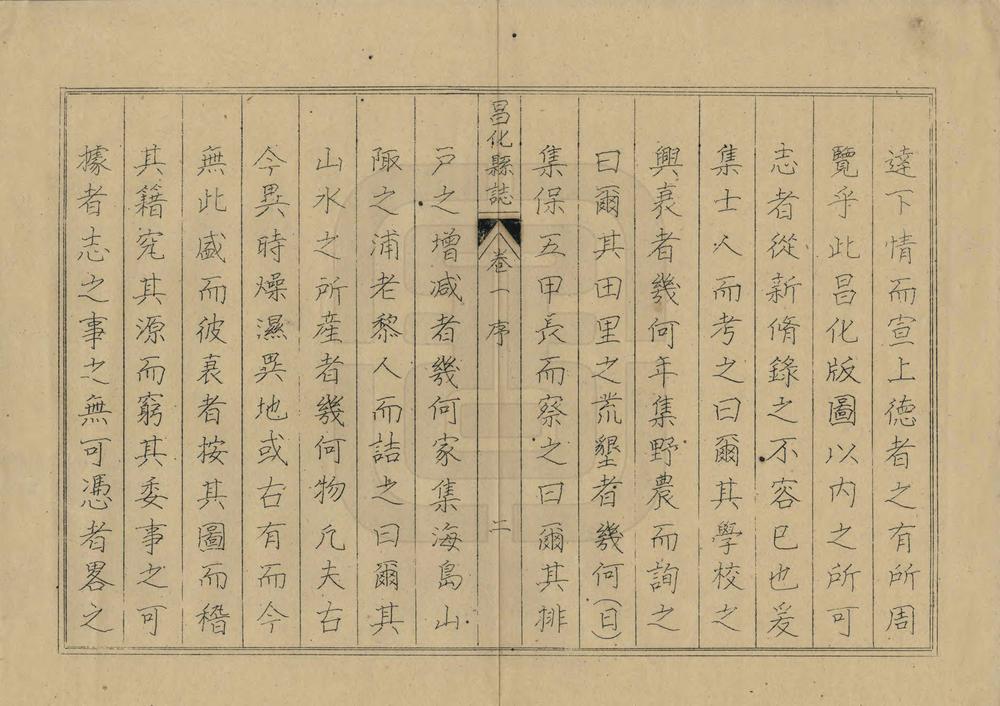 達下情而宣上德者之有所周
覽乎此昌化版圖以内之所可
志者從新脩錄之不容已也爰
集士人而考之曰爾其學校之
興衰者幾何年集野農而詢之
曰爾其田里之荒墾者幾何（日）
集保五甲長而察之曰爾其排
昌化縣誌 卷一 序 二
戸之增减者幾何家集海島山
陬之浦老黎人而詰之曰爾其
山水之所產者幾何物凢夫古
今異時燥濕異地或古有而今
無此盛而彼衰者按其圖而稽
其籍究其源而窮其委事之可
據者志之事之無可憑者畧之